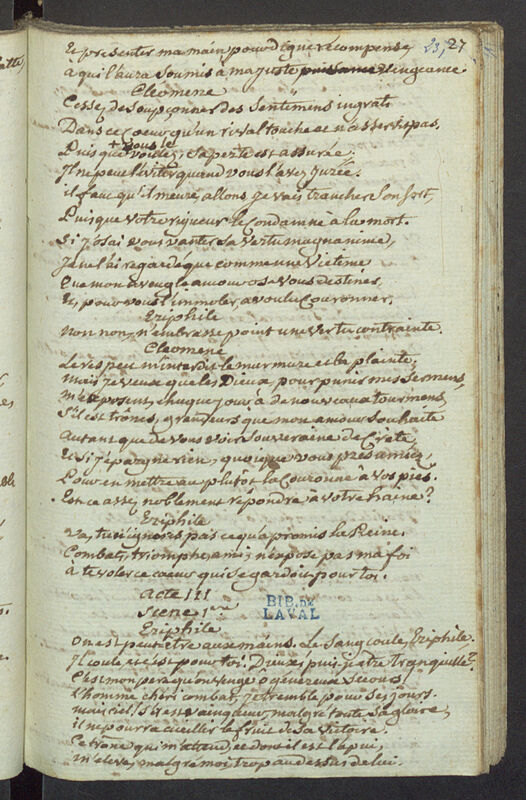 23, 27
Et presenter ma main pour digne récompense
à qui l'aura soumis à ma juste vengeance.
Cleomene
Cessez de soupçonner des sentimens ingrats
Dans ce Coeur qu'un rival touche et n'asservit pas.
Puisque vous le voulez, sa perte est assurée.
Il ne peut l'éviter quand vous l'avez jurée.
il faut qu'il meure, allons, je vais trancher son sort,
Puisque votre rigueur le Condamne à la mort.
Si j'osai vous vanter sa vertu magnanime,
Je ne l'ai regardé que comme une victime
Que mon aveugle amour ose vous destiner,
Et, pour vous l'immoler a voulu Couronner.
Eriphile
non non, n'embrasse point une vertu contrainte.
Cleomene
Le respect m'interdit le murmure et la plainte.
mais je veux que les Dieux, pour punir mes sermens,
m'exposent chaque jour à de nouveaux tourmens,
S'il est trônes, grandeurs que mon amour souhaite
autant que de vous voir souveraine de Crète,
Et si j'épargne rien, quoique vous présumiez,
Pour en mettre au plutôt la Couronne à vos piés.
Est-ce assez noblement répondre à votre haine?
Eriphile
Va, tu n'ignores pas ce qu'a promis la Reine.
Combats, triomphe, ami; n'expose pas ma foi
à te voler ce coeur qui se gardoit pour toi.
acte III
Scene 1ere
Eriphile
BIB. DE
LAVAL
on est peut être aux mains. Le sang coule, Eriphile.
Il coule, et c'est pour toi! Dieux, puis-je être tranquille?
C'est mon pere qu'on venge o généreux secours
l'homme chéri combat, je tremble pour ses jours.
mais ciel! s'il est vainqueur, malgré toute sa gloire,
il ne pourra cueillir le fruit de sa victoire.
Ce trône qui m'attend, et dont il est l'apui,
m'éleve, malgré moi, trop au dessus de lui.